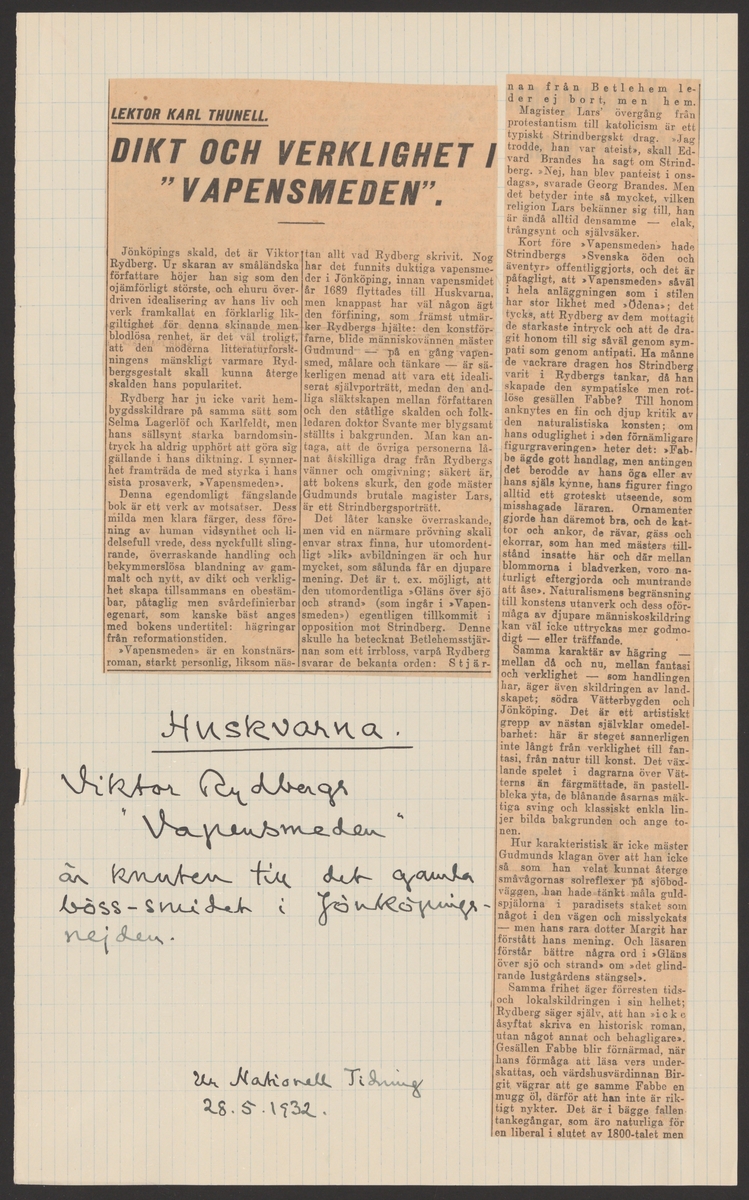 LEKTOR KARL THUNELL.
DIKT OCH VERKLIGHET I
"VAPENSMEDEN".
Jönköpings skald, det är Viktor
Rydberg. Ur skaran av småländska
författare höjer han sig som den
ojämförligt störste, och ehuru över-
driven idealisering av hans liv och
verk framkallat en förklarlig lik-
giltighet för denna skinande men
blodlösa renhet, är det väl troligt,
att den moderna litteraturforsk-
ningens mänskligt varmare Ryd-
bergsgestalt skall kunna återge
skalden hans popularitet.
Rydberg har ju icke varit hem-
bygdsskildrare på samma sätt som
Selma Lagerlöf och Karlfeldt, men
hans sällsynt starka barndomsin-
tryck ha aldrig upphört att göra sig
gällande i hans diktning. I synner-
het framträda de med styrka i hans
sista prosaverk, »Vapensmeden».
Denna egendomligt fängslande
bok är ett verk av motsatser. Dess
milda men klara färger, dess före-
ning av human vidsynthet och li-
delsefull vrede, dess nyckfullt sling-
rande, överraskande handling och
bekymmerslösa blandning av gam-
malt och nytt, av dikt och verklig-
het skapa tillsammans en obestäm-
bar, påtaglig men svårdefinierbar
egenart, som kanske bäst anges
med bokens undertitel: hägringar
från reformationstiden.
»Vapensmeden» är en konstnärs-
roman, starkt personlig, liksom näs-
tan allt vad Rydberg skrivit. Nog
har det funnits duktiga vapensme-
der i Jönköping, innan vapensmidet
år 1689 flyttades till Huskvarna,
men knappast har väl någon ägt
den förfining, som främst utmär-
ker Rydbergs hjälte: den konstför-
farne, blide människovännen mäster
Gudmund — på en gång vapen-
smed, målare och tänkare — är sä-
kerligen menad att vara ett ideali-
serat självporträtt, medan den and-
liga släktskapen mellan författaren
och den ståtlige skalden och folk-
ledaren doktor Svante mer blygsamt
ställts i bakgrunden. Man kan an-
taga, att de övriga personerna lå-
nat åtskilliga drag från Rydbergs
vänner och omgivning; säkert är,
att bokens skurk, den gode mäster
Gudmunds brutale magister Lars,
är ett Strindbergsporträtt.
Det låter kanske överraskande,
men vid en närmare prövning skall
envar strax finna, hur utomordent-
ligt »lik» avbildningen är och hur
mycket, som sålunda får en djupare
mening. Det är t. ex. möjligt, att
den utomordentliga »Gläns över sjö
och strand» (som ingår i »Vapen-
smeden») egentligen tillkommit i
opposition mot Strindberg. Denne
skulle ha betecknat Betlehemsstjär-
nan som ett irrbloss, varpå Rydberg
svarar de bekanta orden: Stjär-
nan från Betlehem le-
der ej bort, men hem.
Magister Lars' övergång från
protestantism till katolicism är ett
typiskt Strindbergskt drag. »Jag
trodde, han var ateist», skall Ed-
vard Brandes ha sagt om Strind-
berg. »Nej, han blev panteist i ons-
dags», svarade Georg Brandes. Men
det betyder inte så mycket, vilken
religion Lars bekänner sig till, han
är ändå alltid densamme — elak,
trångsynt och självsäker.
Kort före »Vapensmeden» hade
Strindbergs »Svenska öden och
äventyr» offentliggjorts, och det är
påtagligt, att »Vapensmeden» såväl
i hela anläggningen som i stilen
har stor likhet med »Ödena»; det
tycks, att Rydberg av dem mottagit
de starkaste intryck och att de dra-
git honom till sig såväl genom sym-
pati som genom antipati. Ha månne
de vackrare dragen hos Strindberg
varit i Rydbergs tankar, då han
skapade den sympatiske men rot-
löse gesällen Fabbe? Till honom
anknytes en fin och djup kritik av
den naturalistiska konsten; om
hans oduglighet i »den förnämligare
figurgraveringen» heter det: »Fab-
be ägde gott handlag, men antingen
det berodde av hans öga eller av
hans själs kynne, hans figurer fingo
alltid ett groteskt utseende, som
misshagade läraren. Ornamenter
gjorde han däremot bra, och de kat-
tor och ankor, de rävar, gäss och
ekorrar, som han med mästers till-
stånd insatte här och där mellan
blommorna i bladverken, voro na-
turligt eftergjorda och muntrande
att åse». Naturalismens begränsning
till konstens utanverk och dess oför-
måga av djupare människoskildring
kan väl icke uttryckas mer godmo-
digt — eller träffande.
Samma karaktär av hägring —
mellan då och nu, mellan fantasi
och verklighet — som handlingen
har, äger även skildringen av land-
skapet; södra Vätterbygden och
Jönköping. Det är ett artistiskt
grepp av nästan självklar omedel-
barhet: här är steget sannerligen
inte långt från verklighet till fan-
tasi, från natur till konst. Det väx-
lande spelet i dagrarna över Vät-
terns än färgmättade, än pastell-
bleka yta, de blånande åsarnas mäk-
tiga sving och klassiskt enkla lin-
jer bilda bakgrunden och ange to-
nen.
Hur karakteristisk är icke mäster
Gudmunds klagan över att han icke
så som han velat kunnat återge
småvågornas solreflexer på sjöbod-
väggen, han hade tänkt måla guld-
spjälorna i paradisets staket som
något i den vägen och misslyckats
— men hans rara dotter Margit har
förstått hans mening. Och läsaren
förstår bättre några ord i »Gläns
över sjö och strand» om »det glind-
rande lustgårdens stängsel».
Samma frihet äger förresten tids-
och lokalskildringen i sin helhet;
Rydberg säger själv, att han »icke
åsyftat skriva en historisk roman,
utan något annat och behagligare».
Gesällen Fabbe blir förnärmad, när
hans förmåga att läsa vers under-
skattas, och värdshusvärdinnan Bir-
git vägrar att ge samme Fabbe en
mugg öl, därför att han inte är rik-
tigt nykter. Det är i bägge fallen
tankegångar, som äro naturliga för
en liberal i slutet av 1800-talet men
Huskvarna.
Viktor Rydbergs
"Vapensmeden"
är knuten till det gamla
böss-smidet i Jönköpings-
nejden.
Ur Nationell Tidning
28.5.1932.